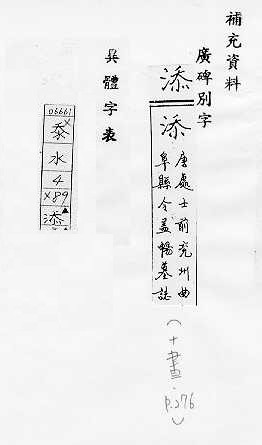 補充資料
廣碑別字
添
添
唐處士前兗州曲
阜縣令蓋暢墓誌
(十畫.
p.276)
異體字表
06661
㳟
水
4
×89
添